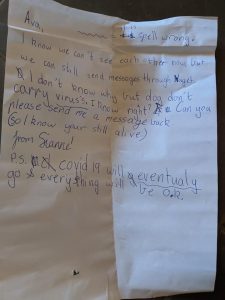 Ava,
spell wrong
I know we can't see each other now but
we can still send messages through
I don't know why but dog don't
carry virus's. I know right! Can you
please send me a message back
(so I know your still alive)
from Sianne!
P.S. covid 19 will eventualy
go every thing will
be o.k.